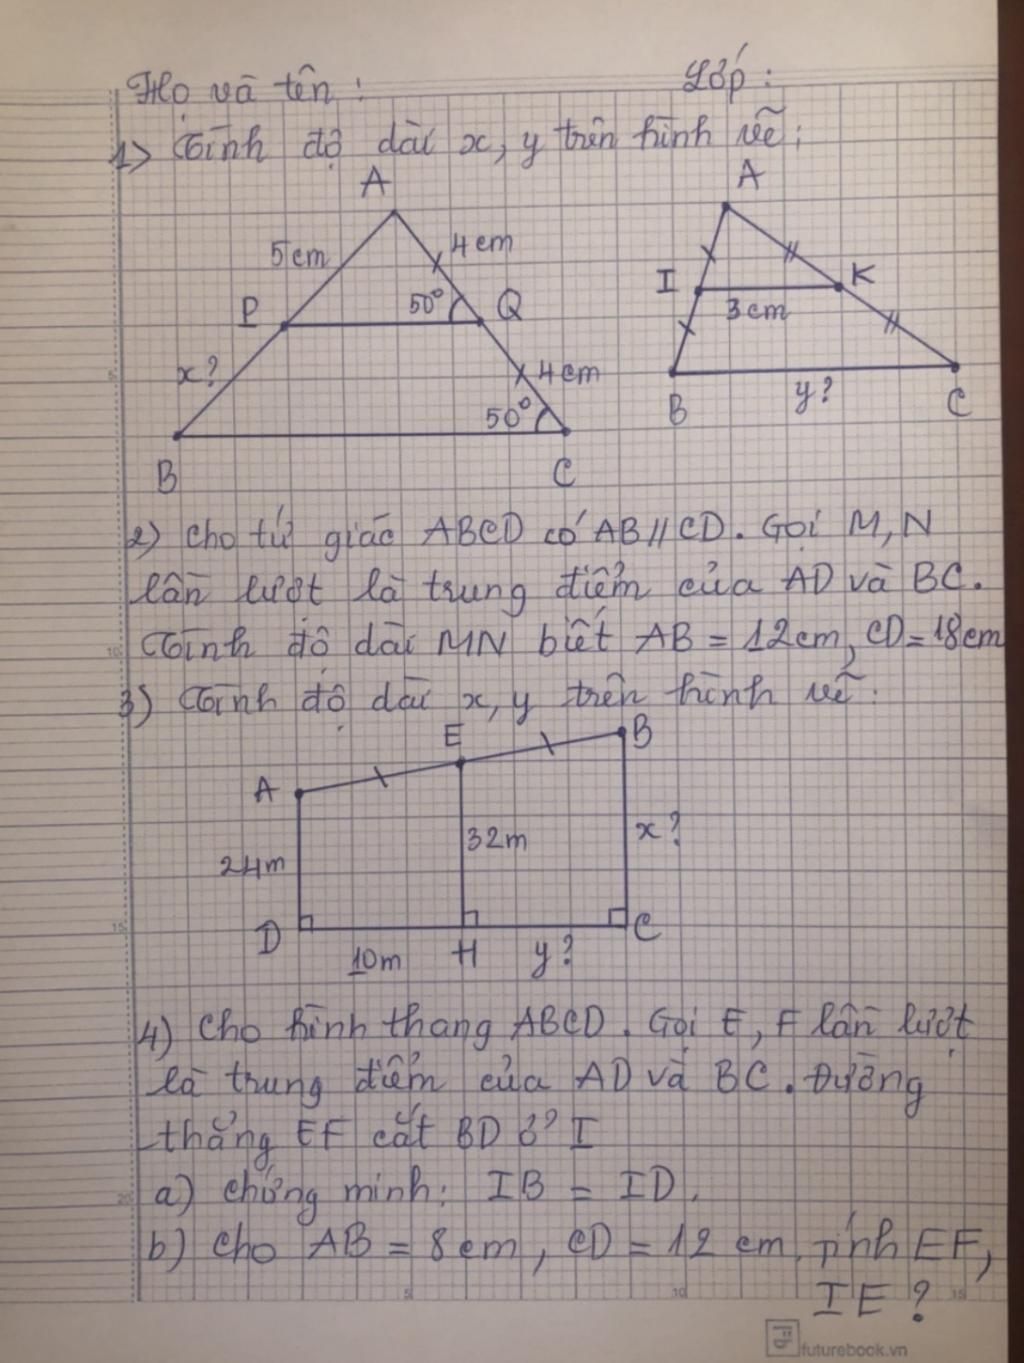 Họ và tên :
Lớp :
1) Tính độ dài x, y trên hình vẽ :
A
5cm
4cm
P
50°
Q
x?
4cm
50°
B
C
A
I
K
3cm
B
y?
C
2) Cho tứ giác ABCD có AB // CD. Gọi M, N
lần lượt là trung điểm của AD và BC.
Tính độ dài MN biết AB = 12cm, CD = 18cm
3) Tính độ dài x, y trên hình vẽ :
E
B
A
32m
x?
24m
D
C
10m
H
y?
4) Cho hình thang ABCD. Gọi E, F lần lượt
là trung điểm của AD và BC. Đường
thẳng EF cắt BD ở I
a) Chứng minh : IB = ID.
b) Cho AB = 8cm, CD = 12 cm. Tính EF,
IE ?
5
10
15
20
5
10
15
futurebook.vn